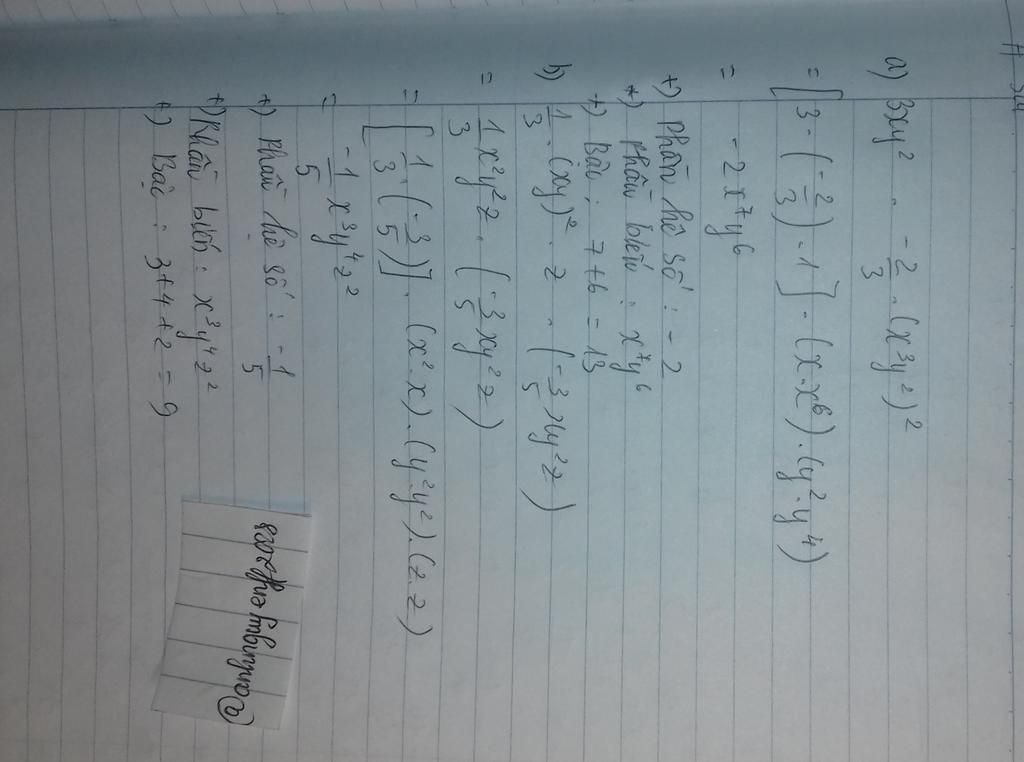 a) 3xy² . -2/3 . (x³y²)²
= [3 . (-2/3) . 1] . (x.x⁶).(y².y⁴)
= -2x⁷y⁶
+) Phần hệ số : -2
+) Phần biến : x⁷y⁶
+) Bậc : 7+6 = 13
b) 1/3 . (xy)² . z . (-3/5 xy²z)
= 1/3 x²y²z . (-3/5 xy²z)
= [1/3 . (-3/5)] . (x².x) . (y².y²).(z.z)
= -1/5 x³y⁴z²
+) Phần hệ số : -1/5
+) Phần biến : x³y⁴z²
+) Bậc : 3+4+2 = 9